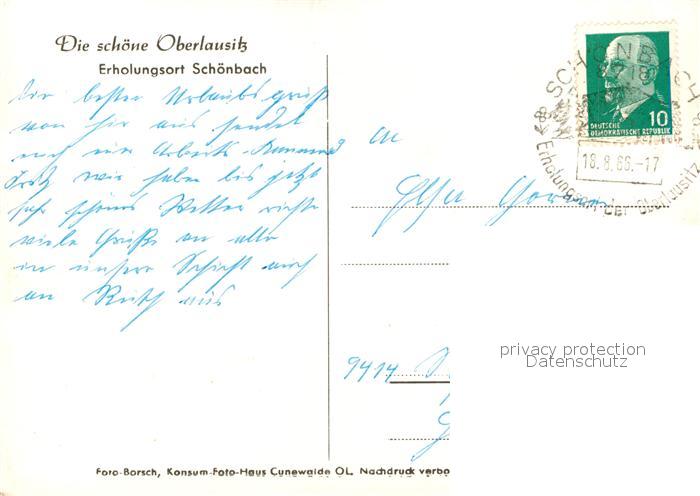 Die schöne Oberlausitz
Erholungsort Schönbach
Die besten Urlaubsgrüße
von hier aus sendet
euch ein Arbeits-
Trotz wir haben bis jetzt
sehr schönes Wetter richte
viele Grüße an alle
in unsere Schicht auch
an Ruth aus
An
9414
SCHÖNBACH
10
DEUTSCHE
DEMOKRATISCHE REPUBLIK
18.8.66.-17
Erholungsort der Oberlausitz
privacy protection
Datenschutz
Foto-Borsch, Konsum-Foto-Haus Cunewalde OL. Nachdruck verbo